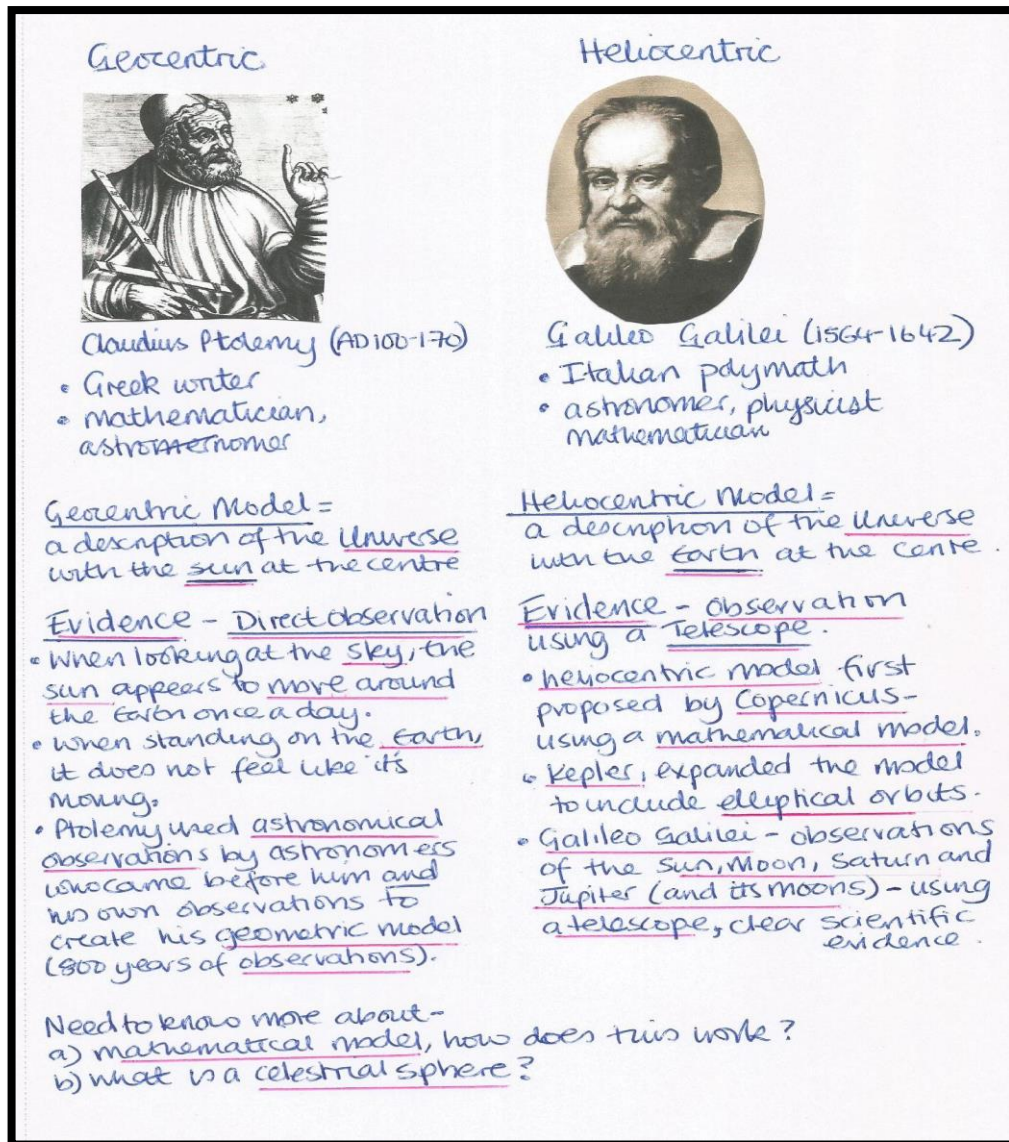 Geocentric
Claudius Ptolemy (AD100-170)
• Greek writer
• mathematician,
astronomer
Geocentric Model =
a description of the Universe
with the sun at the centre
Evidence - Direct Observation
• When looking at the sky, the
sun appeers to move around
the Earth once a day.
• When standing on the Earth,
it does not feel like it's
moving.
• Ptolemy used astronomical
observations by astronomers
who came before him and
his own observations to
create his geometric model
(800 years of observations).
Heliocentric
Galileo Galilei (1564-1642)
• Italian polymath
• astronomer, physicist
mathematician
Heliocentric Model =
a description of the Universe
with the Earth at the centre.
Evidence - observation
using a Telescope.
• heliocentric model first
proposed by Copernicus-
using a mathematical model.
• Kepler, expanded the model
to include elliptical orbits.
• Galileo Galilei - observations
of the Sun, Moon, Saturn and
Jupiter (and its moons) - using
a telescope, clear scientific
evidence.
Need to know more about-
a) mathematical model, how does this work?
b) what is a celestrial sphere?